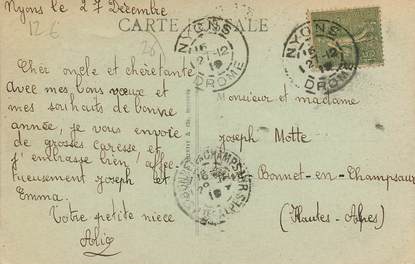 Nyons le 27 Décembre
CARTE POSTALE
NYONS
DROME
NYONS
DROME
Cher oncle et chère tante
Avec mes bons vœux et
mes souhaits de bonne
année, je vous envoie
de grosses caresse et
j'embrasse bien affec-
tueusement joseph et
Emma.
Votre petite nièce
Monsieur et madame
joseph Motte
Bonnet-en-Champsaur
(Hautes-Alpes)